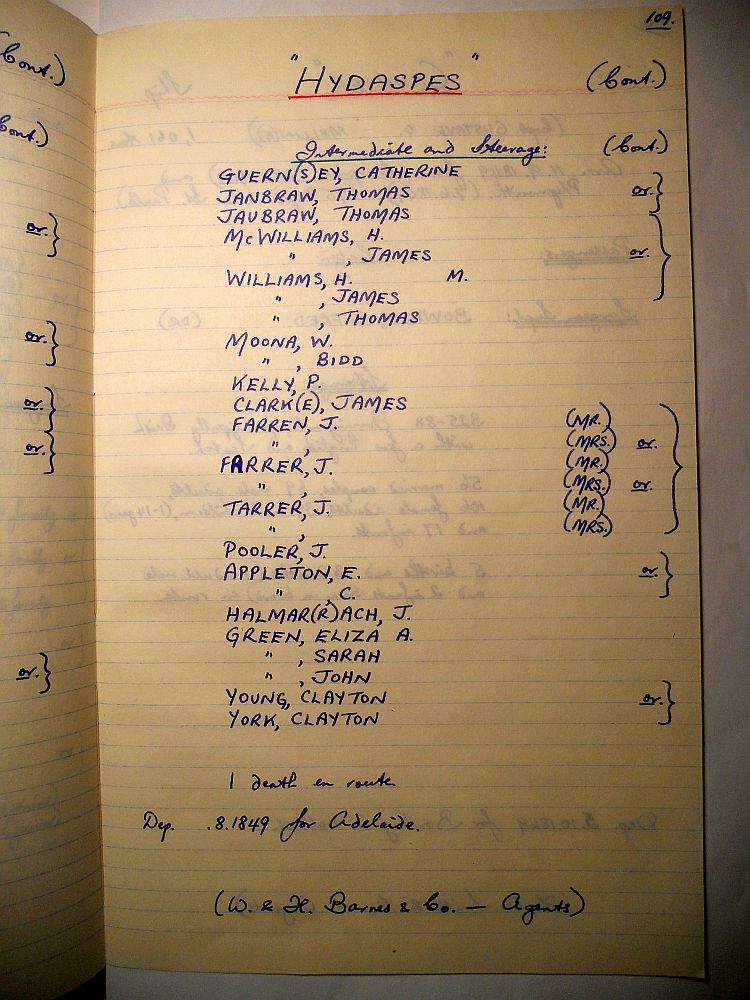 109.
"HYDASPES" (Cont.)
Intermediate and Steerage: (Cont.)
GUERN(S)EY, CATHERINE
JANBRAW, THOMAS or.}
JAUBRAW, THOMAS
McWILLIAMS, H.
" , JAMES or.}
WILLIAMS, H. M.
" , JAMES
" , THOMAS
MOONA, W.
" , BIDD
KELLY, P.
CLARK(E), JAMES
FARREN, J. (MR.)
" , (MRS.) or.
FARRER, J. (MR.)
" , (MRS.) or.
TARRER, J. (MR.)
" , (MRS.)
POOLER, J.
APPLETON, E. or.}
" , C.
HALMAR(R)ACH, J.
GREEN, ELIZA A.
" , SARAH
" , JOHN
YOUNG, CLAYTON or.}
YORK, CLAYTON
1 death en route.
Dep. .8.1849 for Adelaide.
(W. & H. Barnes & Co. — Agents)
(Cont.)
(Cont.)
or.}
or.}
or.}
or.}
or.}